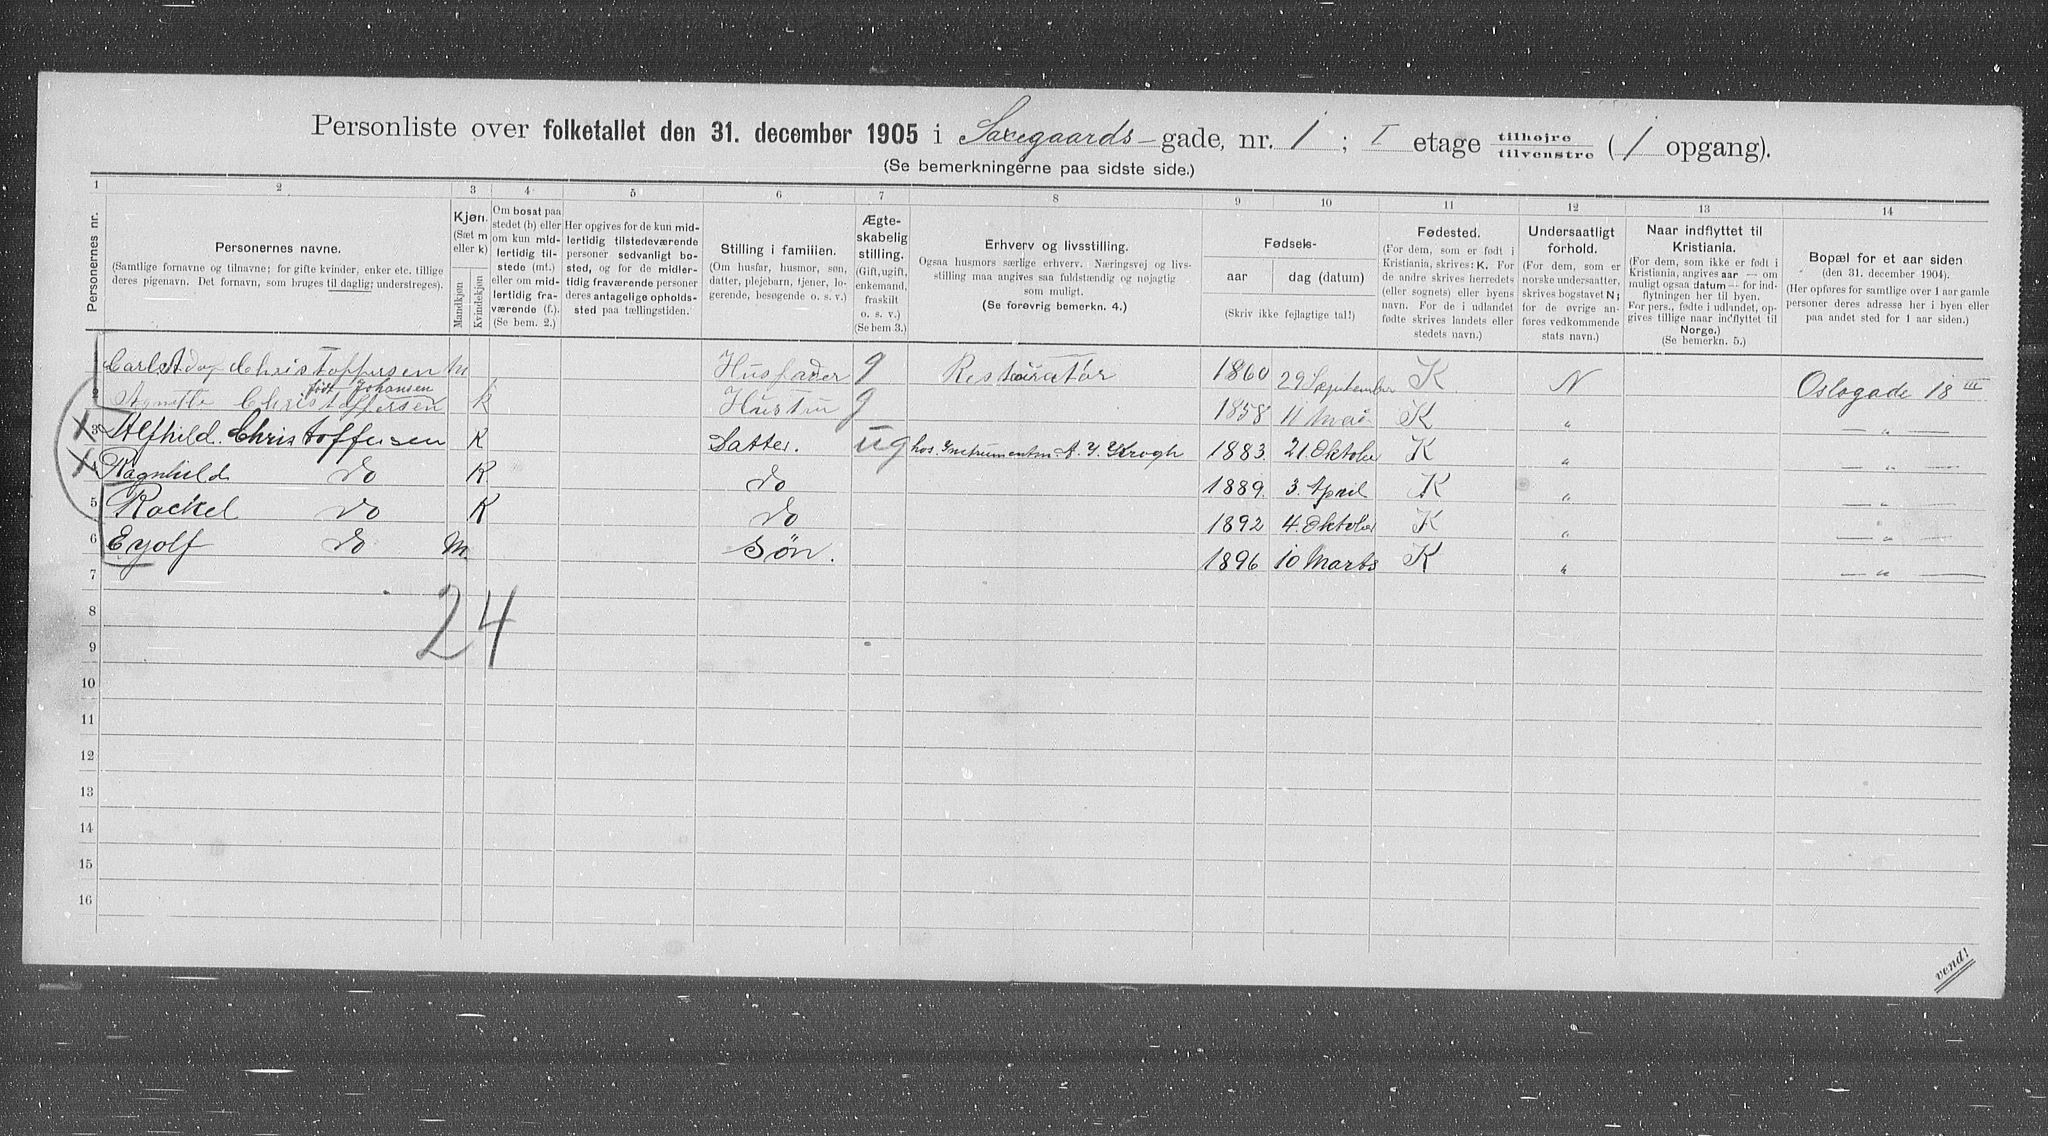 Personliste over folketallet den 31. december 1905 i Saxegaards-gade, nr. 1; I etage tilhøjre tilvenstre (1 opgang).
(Se bemerkningerne paa sidste side.)
1 2 3 4 5 6 7 8 9 10 11 12 13 14
Personernes nr.
Personernes navne.
(Samtlige fornavne og tilnavne; for gifte kvinder, enker etc. tillige
deres pigenavn. Det fornavn, som bruges til daglig; understreges).
Kjøn.
(Sæt m
eller k)
Mandkjøn
Kvindekjøn
Om bosat paa
stedet (b) eller
om kun mid-
lertidig til-
stede (mt.)
eller om mid-
lertidig fra-
værende (f.).
(Se bem. 2.)
Her opgives for de kun mid-
lertidig tilstedeværende
personer sedvanligt bo-
sted, og for de midler-
tidig fraværende personer
deres antagelige opholds-
sted paa tællingstiden.
Stilling i familien.
(Om husfar, husmor, søn,
datter, plejebarn, tjener, lo-
gerende, besøgende o. s. v.)
Ægte-
skabelig
stilling.
(Gift, ugift,
enkemand,
fraskilt
o. s. v.)
(Se bem 3.)
Erhverv og livsstilling.
Ogsaa husmors særlige erhverv. Næringsvej og livs-
stilling maa angives saa fuldstændig og nøjagtig
som muligt.
(Se forøvrig bemerkn. 4.)
Fødsels-
aar
dag (datum)
(Skriv ikke fejlagtige tal!)
Fødested.
(For dem, som er født i
Kristiania, skrives: K. For
de andre skrives herredets
(eller sognets) eller byens
navn. For de i udlandet
fødte skrives landets eller
stedets navn.)
Undersaatligt
forhold.
(For dem, som er
norske undersaatter,
skrives bogstavet N;
for de øvrige an-
føres vedkommende
stats navn.)
Naar indflyttet til
Kristiania.
(For dem, som ikke er født i
Kristiania, angives aar — om
muligt ogsaa datum — for ind-
flytningen her til byen.
For pers., fødte i udlandet, op-
gives tillige naar indflyttet til
Norge.)
(Se bemerkn. 5.)
Bopæl for et aar siden
(den 31. december 1904).
(Her opføres for samtlige over 1 aar gamle
personer deres adresse her i byen eller
paa andet sted for 1 aar siden.)
1 Carl Adof Christoffersen m Husfader g Restauratør 1860 29 September K N Oslogade 18 III
født Johansen
2 Agnette Christoffersen k Hustru g 1858 11 Mai K " — " —
3 Alfhild. Christoffersen K Datter. ug hos Instrumentm. A. Y. Krogh 1883. 21 Oktober K " — " —
4 Ragnhild do K do 1889. 3. April K " — " —
5 Rackel do K do 1892 4. Oktober K " — " —
6 Eyolf do M. Søn. 1896 10 Marts K " — " —
7
24
8
9
10
11
12
13
14
15
16
vend!